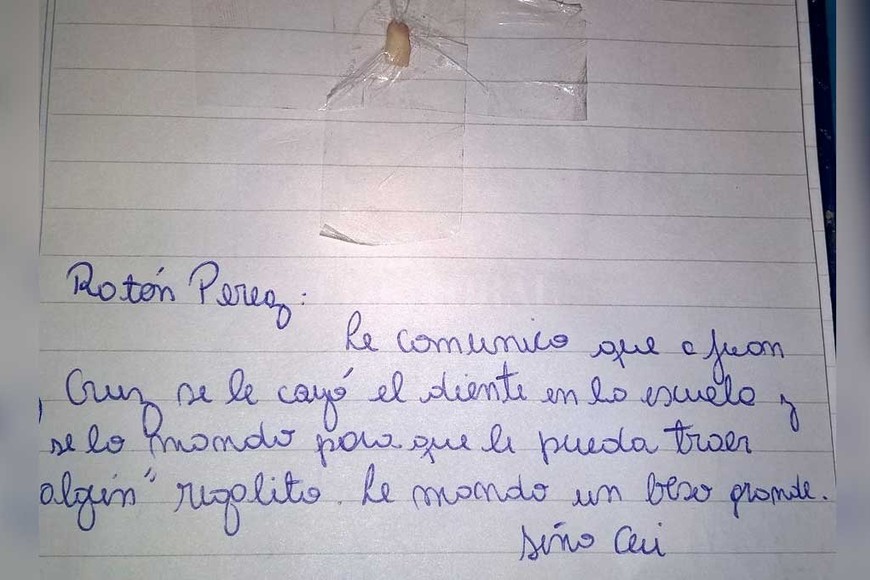 Ratón Perez:
Le comunico que a Juan
Cruz se le cayó el diente en la escuela y
se lo mando para que le pueda traer
algún" regalito. Le mando un beso grande.
Seño Ceci